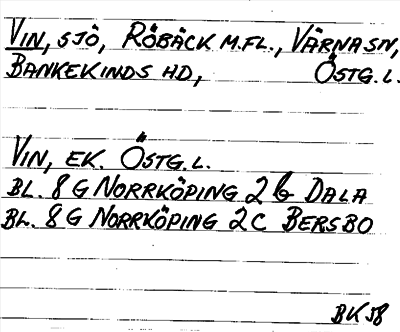 VIN, SJÖ, RÖBÄCK M.FL., VÄRNA SN,
BANKEKINDS HD, ÖSTG.L.
VIN, EK. ÖSTG.L.
BL. 8 G NORRKÖPING 2 b DALA
BL. 8 G NORRKÖPING 2 C BERSBO
BK 58